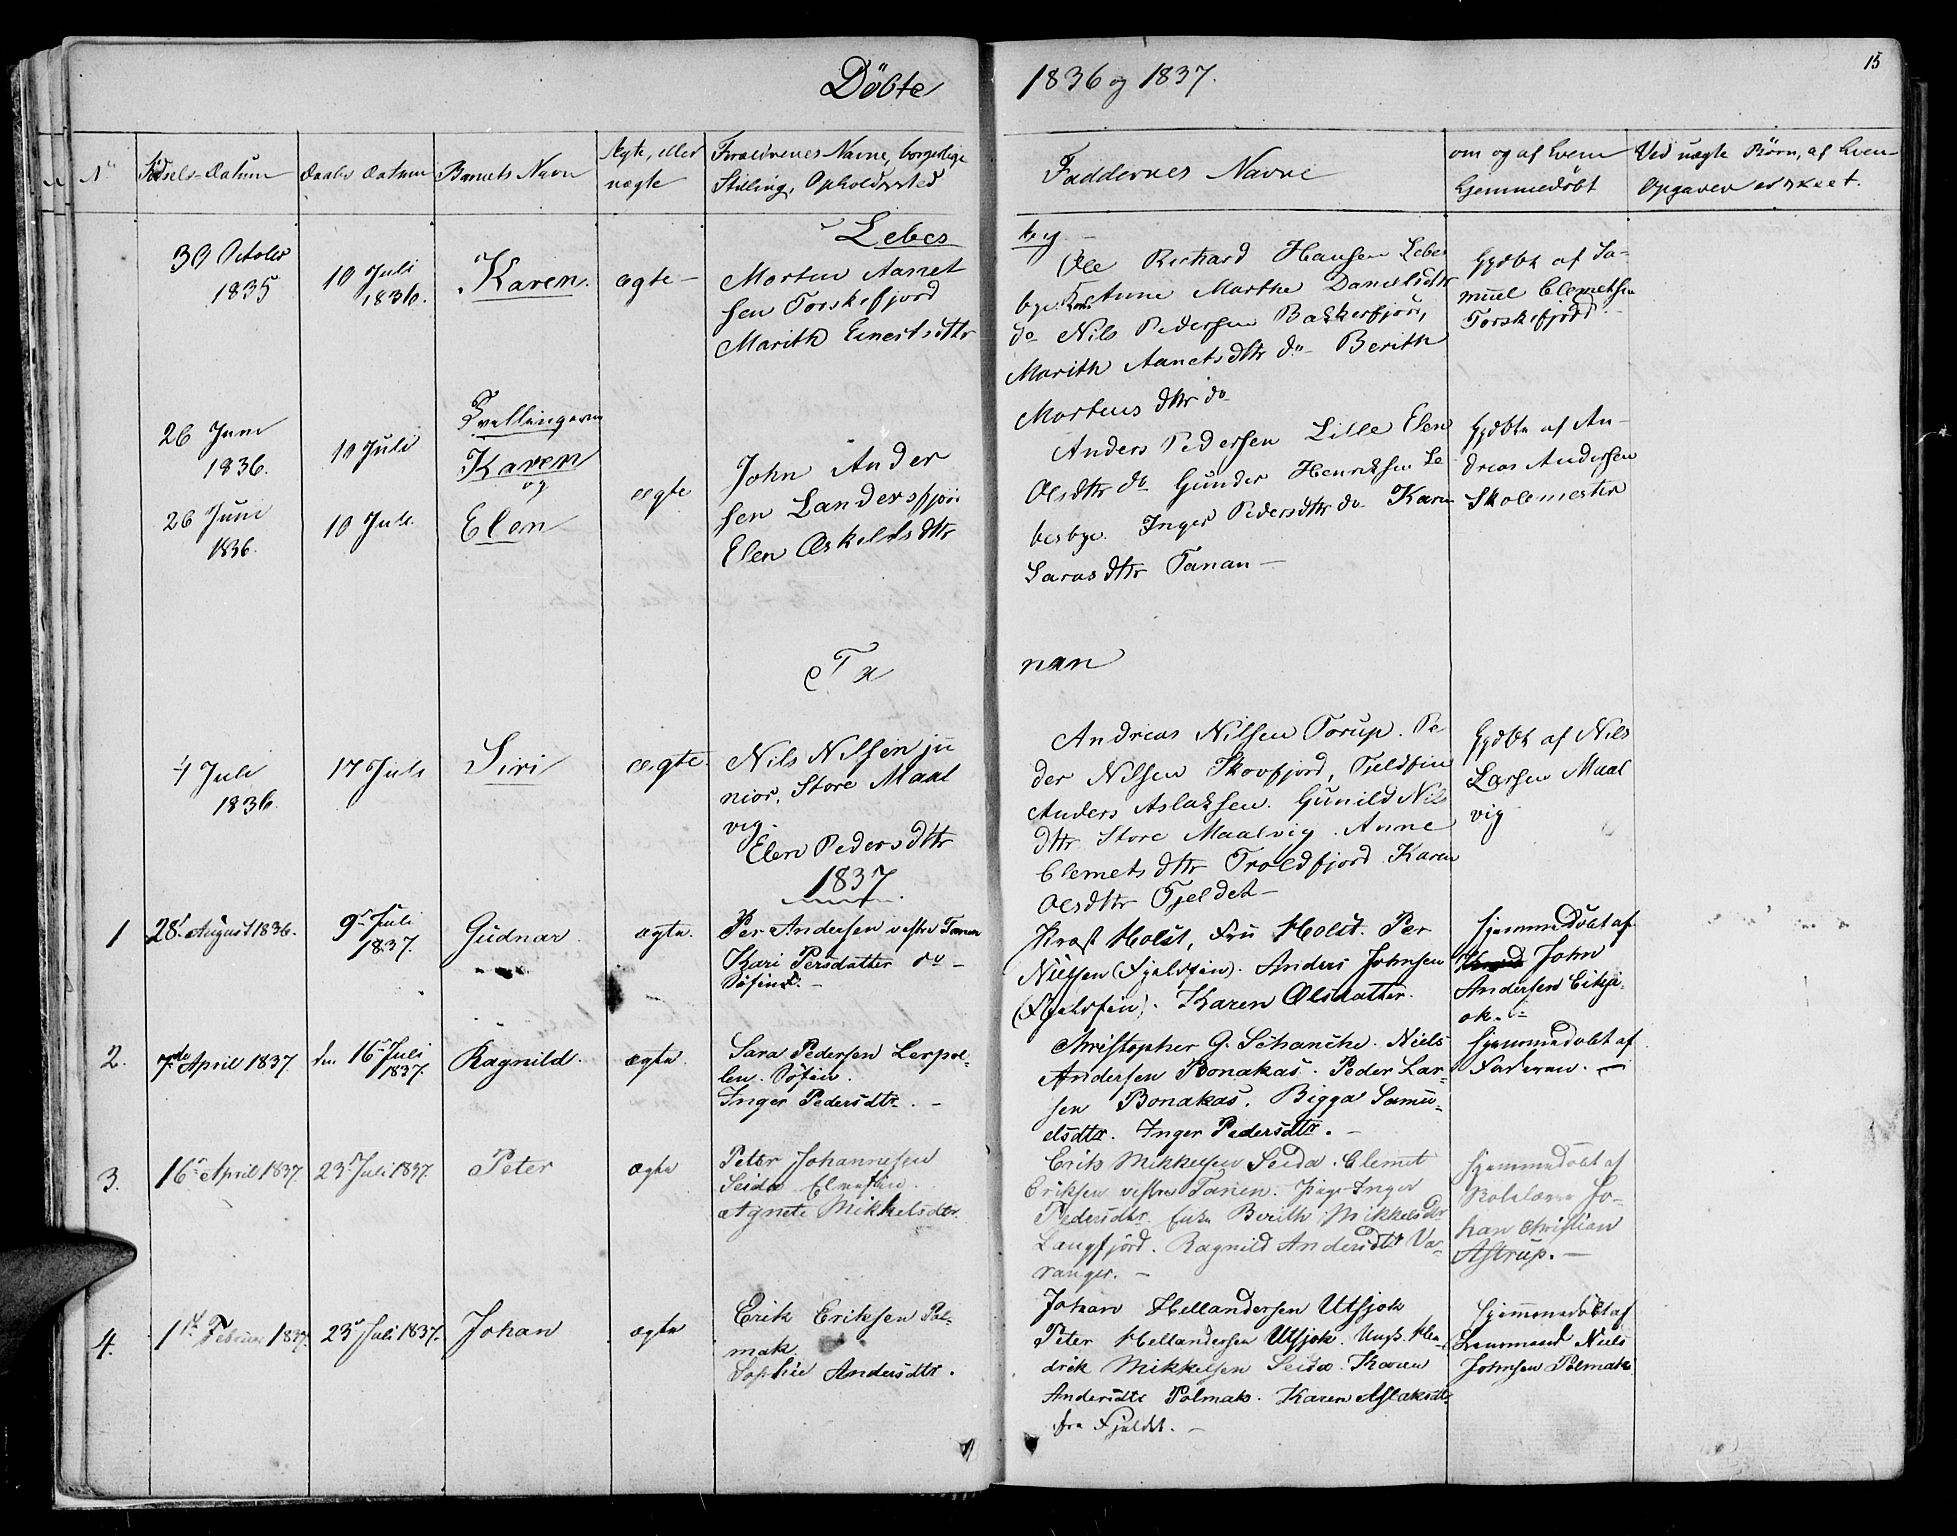 Döbte 1836 og 1837.
15
No
Födsels-Datum
Daabs Datum
Barnets Navn
Ægte, eller
uægte
Forældrenes Navne, borgerlige
Stilling, Opholdssted
Faddernes Navne
om og af hvem
hjemmedöbt
Ved uægte Börn, af hvem
Opgaven er skeet.
Lebes
by
30 October
1835
10 Juli
1836.
Karen.
ægte
Morten Aamet
sen Torskefjord
Marith
Ole Richard Hansen Lebes
bye. Anne Marthe Danielsdtr
do Nils Pedersen
Marith Aametsdttr do Berith
Mortens dttr do
hjdöbt af Sa-
muel Clemetsen
Torskefjord
26 Juni
1836.
10 Juli
Tvillingerne
Karen
og
26 Juni
1836.
10 Juli.
Elen
ægte
John Ander
sen
Elen
Anders Pedersen Lille Elen
Olsdttr do Gunder Henriksen Le
besbye. Inger Pedersdttr do Karen
Sarasdttr Tanan
hjdöbte af An-
dreas Andersen
Skolemester
Ta
nan
4 Juli
1836.
17 Juli
Siri
ægte.
Nils Nilsen ju
nior. Store Maal
vig.
Elen Pedersdttr
Andreas Nilsen Torup. Pe
der Nilsen Skovfjord, Fjeldfin
Anders Aslaksen. Gunild Nils
dttr Store Maalvig. Anne
Clemetsdttr Troldfjord Karen
Olsdttr Fjeldet
hjdöbt af Nils
Larsen Maal
vig
1837.
1
28. August 1836.
9. Juli
1837.
Gudnar.
ægte.
Per Andersen vestre Tanen
Kari Persdatter do
Söfind.
Prost Holst, Fru Holst. Per
Nielsen (Fjeldfin). Anders Johnsen
(Fjeldfin). Karen Olsdatter.
Hjemmedöbt af
John
Andersen
ok.
2.
7de April 1837
den 16 Juli
1837.
Ragnild.
ægte.
Sara Pedersen Lerpol-
len. Söfin.
Inger Pedersdtr.
Christopher G. Schanche. Niels
Andersen Bonakas. Peder Lar-
sen Bonakas. Bigga Samu-
elsdtr. Inger Pedersdtr.
Hjemmedöbt af
Faderen.
3.
16 April 1837.
23 Juli 1837.
Peter
ægte
Peter Johannesen
Seida Elvefin.
Agnete Mikkelsdtr.
Erik Mikkelsen Seida. Clemet
Eriksen vestre Tanen. Pige Inger
Pedersdtr. Enke Berith Mikkelsdtr
Langfjord. Ragnild Andersdtr Va-
ranger.
Hjemmedöbt af
Jo-
han Christian
Astrup.
4.
1 Februar 1837.
23 Juli 1837.
Johan
ægte
Erik Eriksen Pol-
mak.
Sophie Andersdtr.
Johan Hellandersen Utsjok
Peter Hellandersen Utsjok. Ungk. Hen-
drik Mikkelsen Seida. Karen
Andersdtr Polmak. Karen Aslaksdtr
fra Fjeldet.
Hjemmedöbt af
Lensmand Niels
Johnsen Polmak